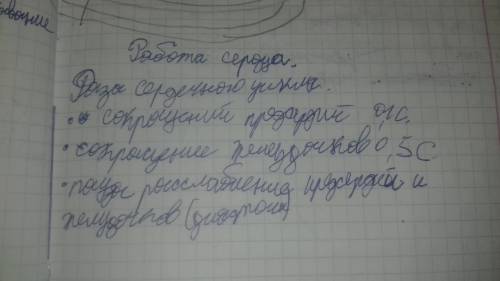 Работа сердца.
Фазы сердечного цикла.
• сокращений предсердий 0,1с.
• сокращение желудочков 0,5С
• пауза расслабление предсердий и
желудочков (диастола)